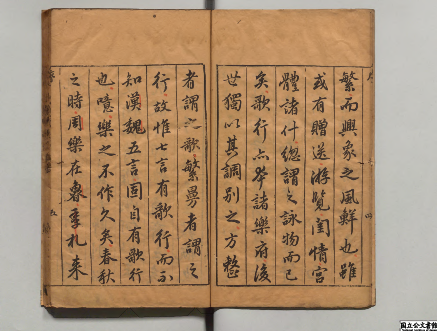 繁而興象之風鮮也雖
或有贈送游覽閨情宮
體諸什總謂之詠物而已
矣歌行亦本諸樂府後
世獨以其調別之方整
者謂之歌繁曼者謂之
行故惟七言有歌行而不
知漢魏五言固自有歌行
也噫樂之不作久矣春秋
之時周樂在魯季札来
序
四
五
国立公文書館